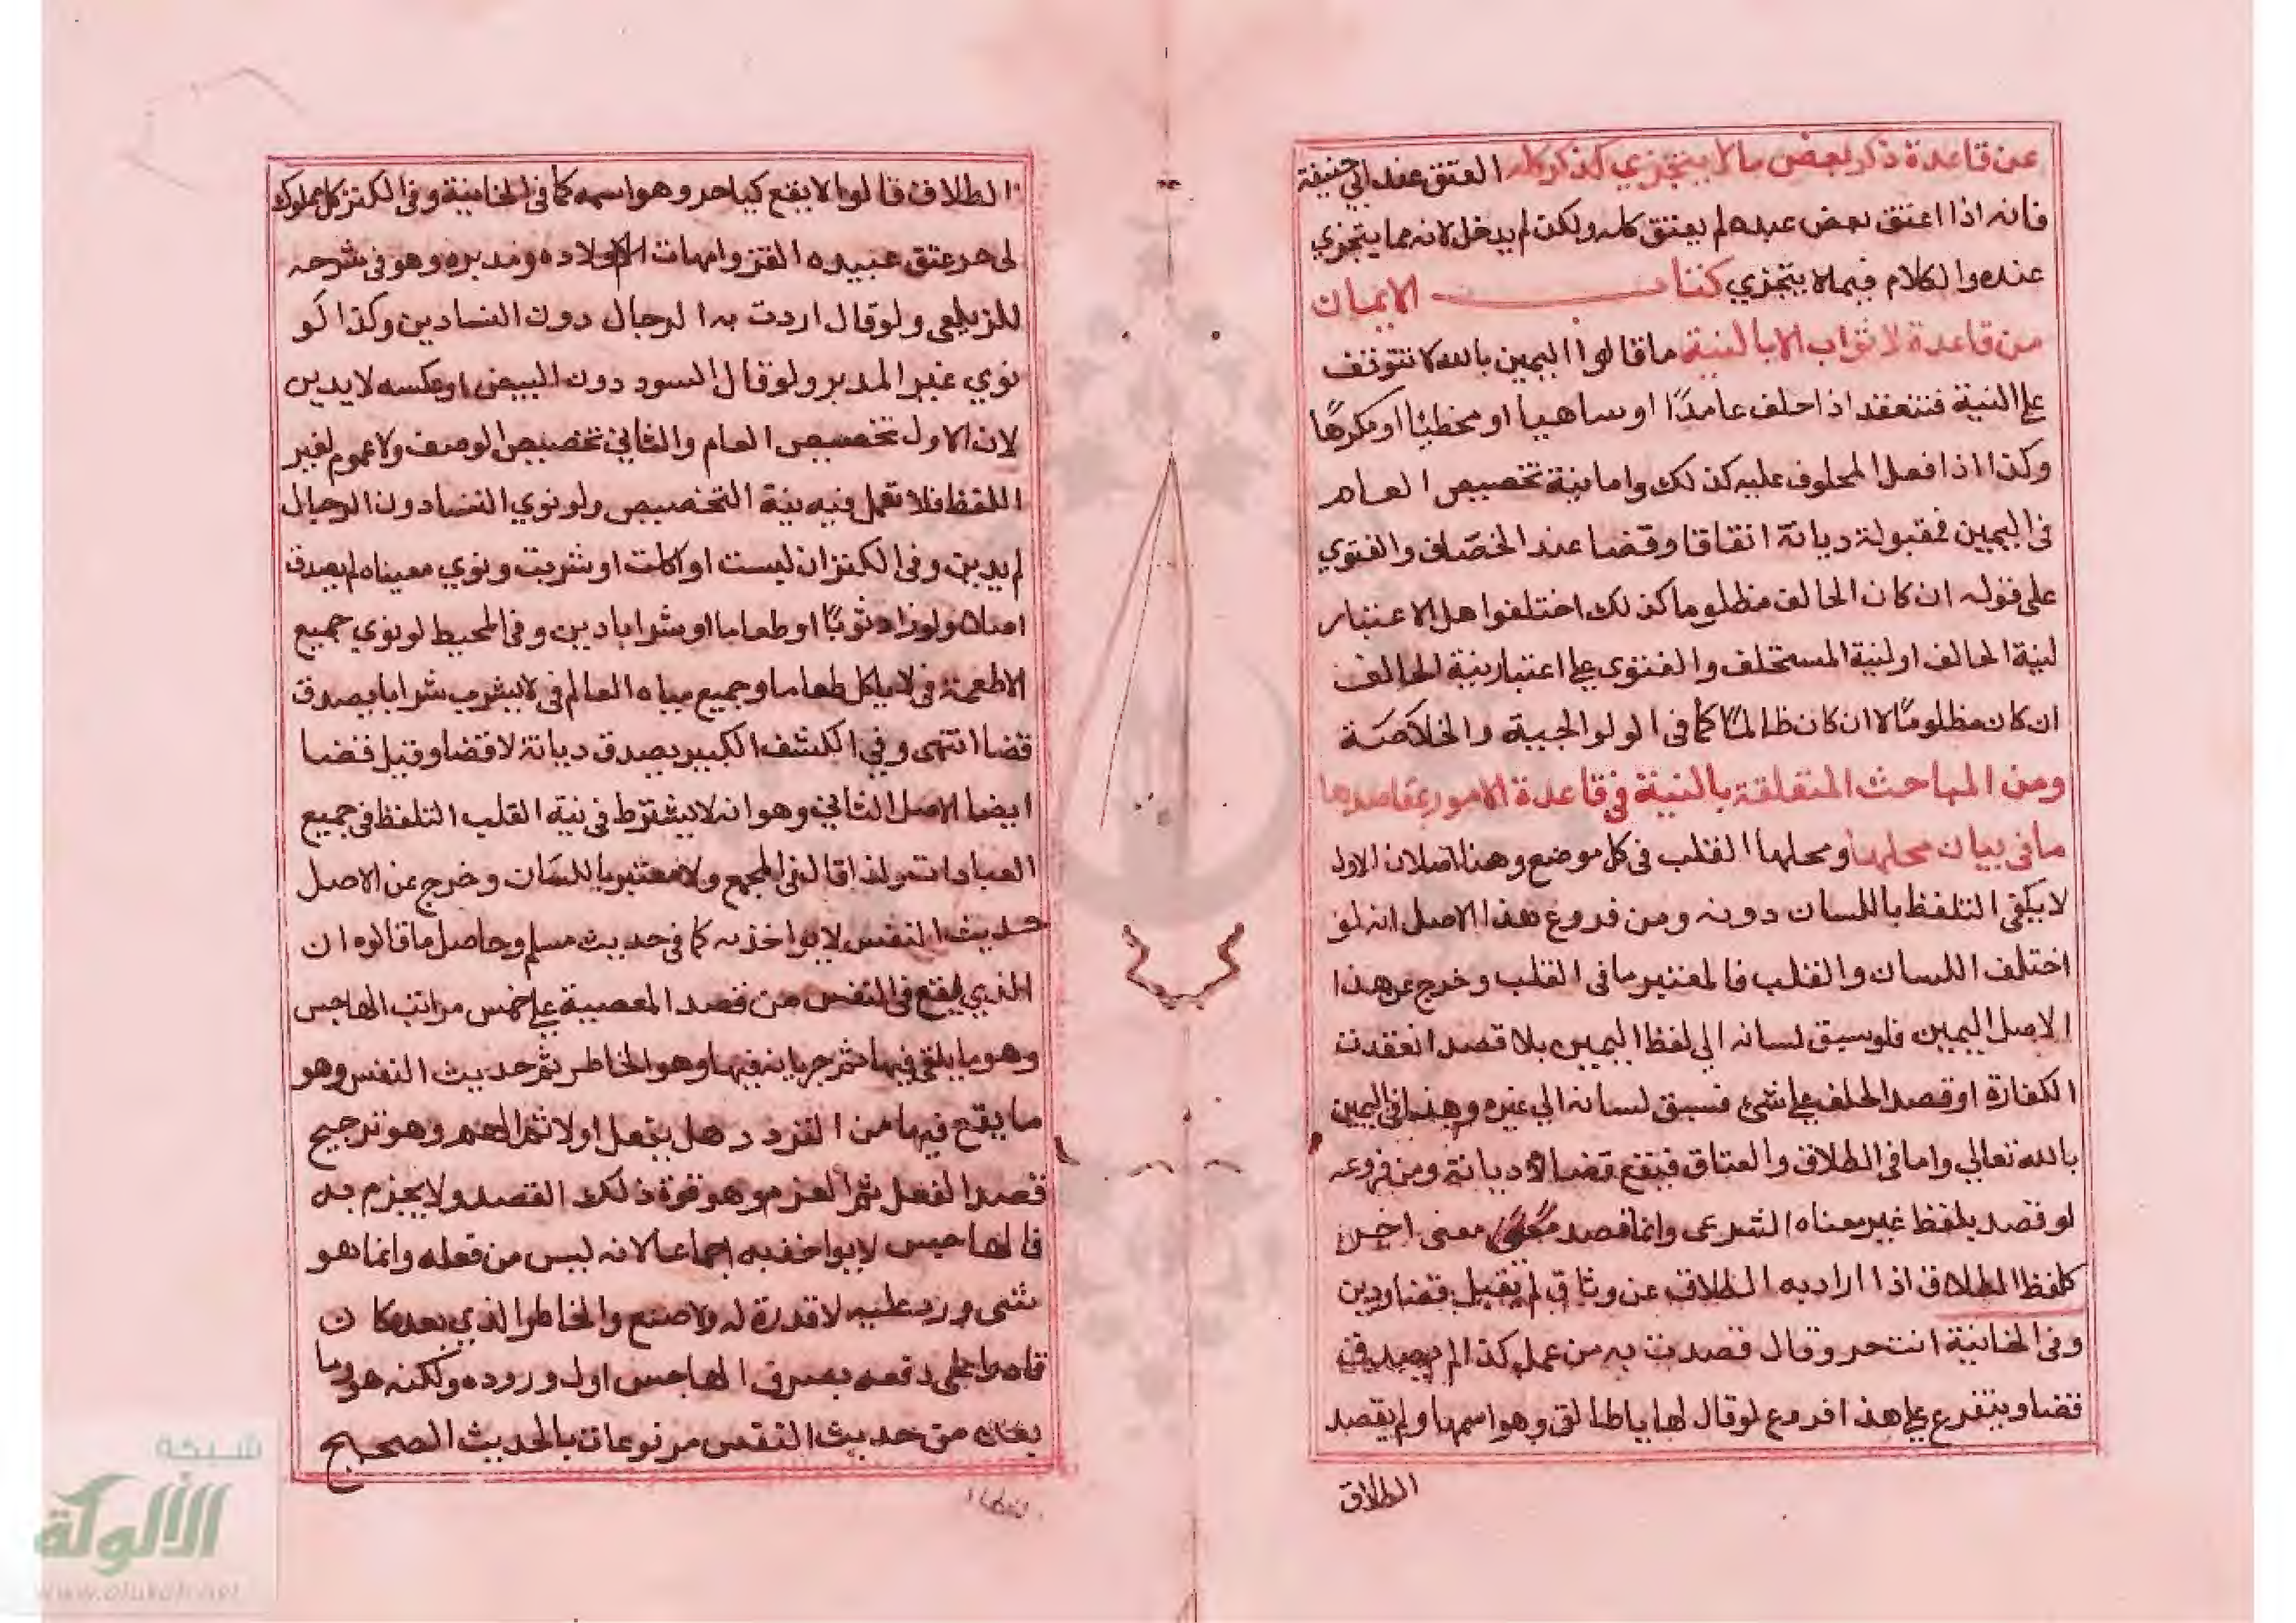 عن قاعدة ذكر بعض مالا يتجزي كذكر كله العتق عند ابي حنيفة
فانه اذا اعتق بعض عبده لم يعتق كله ولكن لم يدخل لانه مما يتجزي
عنده والكلام فيما لا يتجزي كتاب الايمان
من قاعدة لا ثواب الا بالنية ما قالوا اليمين بالله لا تتوقف
على النية فتنعقد اذا حلف عامدًا او ساهيا او مخطئا او مكرهًا
وكذا اذا فعل المحلوف عليه كذلك واما نية تخصيص العام
في اليمين فمقبولة ديانة اتفاقا وقضا عند الخصاف والفتوي
على قوله ان كان الحالف مظلوما كذلك اختلفوا هل الاعتبار
لنية الحالف او لنية المستحلف والفتوى على اعتبار نية الحالف
ان كان مظلومًا لا ان كان ظالمًا كما في الولوالجية والخلاصة
ومن المباحث المتعلقة بالنية في قاعدة الامور بمقاصدها
ما في بيان محلها ومحلها القلب في كل موضع وهنا اصلان الاول
لا يكفي التلفظ باللسان دونه ومن فروع هذا الاصل انه لو
اختلف اللسان والقلب فالمعتبر ما في القلب وخرج عن هذا
الاصل اليمين فلو سبق لسانه الي لفظ اليمين بلا قصد انعقدت
الكفارة او قصد الحلف على شئ فسبق لسانه الي غيره وهذا في اليمين
بالله تعالي واما في الطلاق والعتاق فيقع قضا لا ديانة ومن فروعه
لو قصد بلفظ غير معناه الشرعى وانما قصد معنى اخر
كلفظ الطلاق اذا اراد به الطلاق عن وثاق لم يقبل قضا ودين
وفي الخانية انت حر وقال قصدت به من عمل كذا لم يصدق
قضا ويتفرع على هذا فروع لو قال لها يا طالق وهو اسمها ولم يقصد
الطلاق
الطلاق قالوا لا يقع كيا حر وهو اسمه كما في الخانية وفي الكنز كل مملوك
لى حر عتق عبيده القن وامهات الاولاده ومدبره وهو في شرحه
للزيلعى ولو قال اردت به الرجال دون النسا دين وكذا لو
نوي غير المدبر ولو قال السود دون البيض او عكسه لا يدين
لان الاول تخصيص العام والثاني تخصيص الوصف ولا عموم لغير
اللفظ فلا تعمل فيه نية التخصيص ولو نوي النسا دون الرجال
لم يدين وفي الكنز ان لبست او اكلت او شربت ونوي معينا لم يصدق
اصلا ولو زاد ثوبًا او طعاما او شرابا دين وفي المحيط لو نوي جميع
الاطعمة في لا ياكل طعاما وجميع مياه العالم في لا يشرب شرابا يصدق
قضا انتهى وفي الكشف الكبير يصدق ديانة لا قضا وقيل قضا
ايضا الاصل الثاني وهو انه لا يشترط في نية القلب التلفظ في جميع
العبادات ولذا قال في المجمع ولا معتبر باللسان وخرج عن الاصل
حديث النفس لا يواخذ به كما في حديث مسلم وحاصل ما قالوه ان
الذي يقع في النفس من قصد المعصية على خمس مراتب الهاجس
وهو ما يلقي فيها ثم جريانه فيها وهو الخاطر ثم حديث النفس وهو
ما يقع فيها من التردد هل يفعل او لا ثم الهم وهو ترجيح
قصد الفعل ثم العزم وهو قوة ذلك القصد ولا يجزم به
فالهاجس لا يواخذ به اجماعا لانه ليس من فعله وانما هو
شى ورد عليه لا قدرة له ولا صنع والخاطر الذي بعده كان
قادرا على دفعه بصرف الهاجس اول وروده ولكنه هو وما
بعده من حديث النفس مرفوعان بالحديث الصحيح
شبكة
الألوكة
www.alukah.net